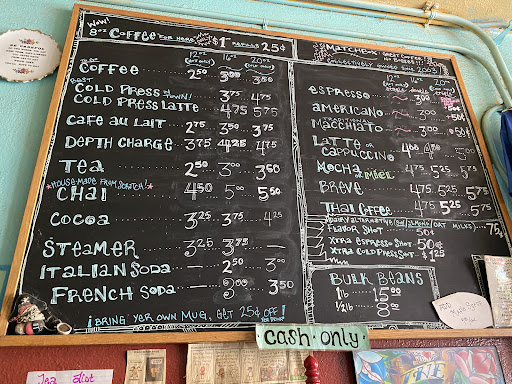 WOW!
8oz COFFEE FOR HERE ONLY $1 REFILLS 25¢
12oz 16oz 20oz
COFFEE 2.50 3.00 3.50
BEST
COLD PRESS 3.75 4.75
COLD PRESS LATTE 4.75 5.75
CAFE AU LAIT 2.75 3.50 3.75
DEPTH CHARGE 3.75 4.25 4.75
TEA 2.50 3.00 3.50
*HOUSE-MADE FROM SCRATCH!*
CHAI 4.50 5.00 5.50
COCOA 3.25 3.75 4.25
STEAMER 3.25 3.75
ITALIAN SODA 2.50 3.00
FRENCH SODA 3.00 3.50
¡BRING YER OWN MUG, GET 25¢ OFF!
COLLECTIVELY OWNED SINCE 2003
12oz 16oz 20oz
ESPRESSO 3.00
AMERICANO 3.00 +50¢
TRADITIONAL
MACCHIATO 3.00 +50¢
LATTE OR
CAPPUCCINO 4.00 4.50 5.00
MOCHA 4.75 5.25 5.75
BREVE 4.75 5.25 5.75
THAI COFFEE 4.75 5.25 5.75
DAIRY ALTERNATIVES (SOY, ALMOND, OAT MILKS) 75¢
FLAVOR SHOT 50¢
XTRA ESPRESSO SHOT 50¢
XTRA COLD PRESS SHOT $1.25
BULK BEANS
1 lb 15.00
1/2 lb 8.00
CASH ONLY